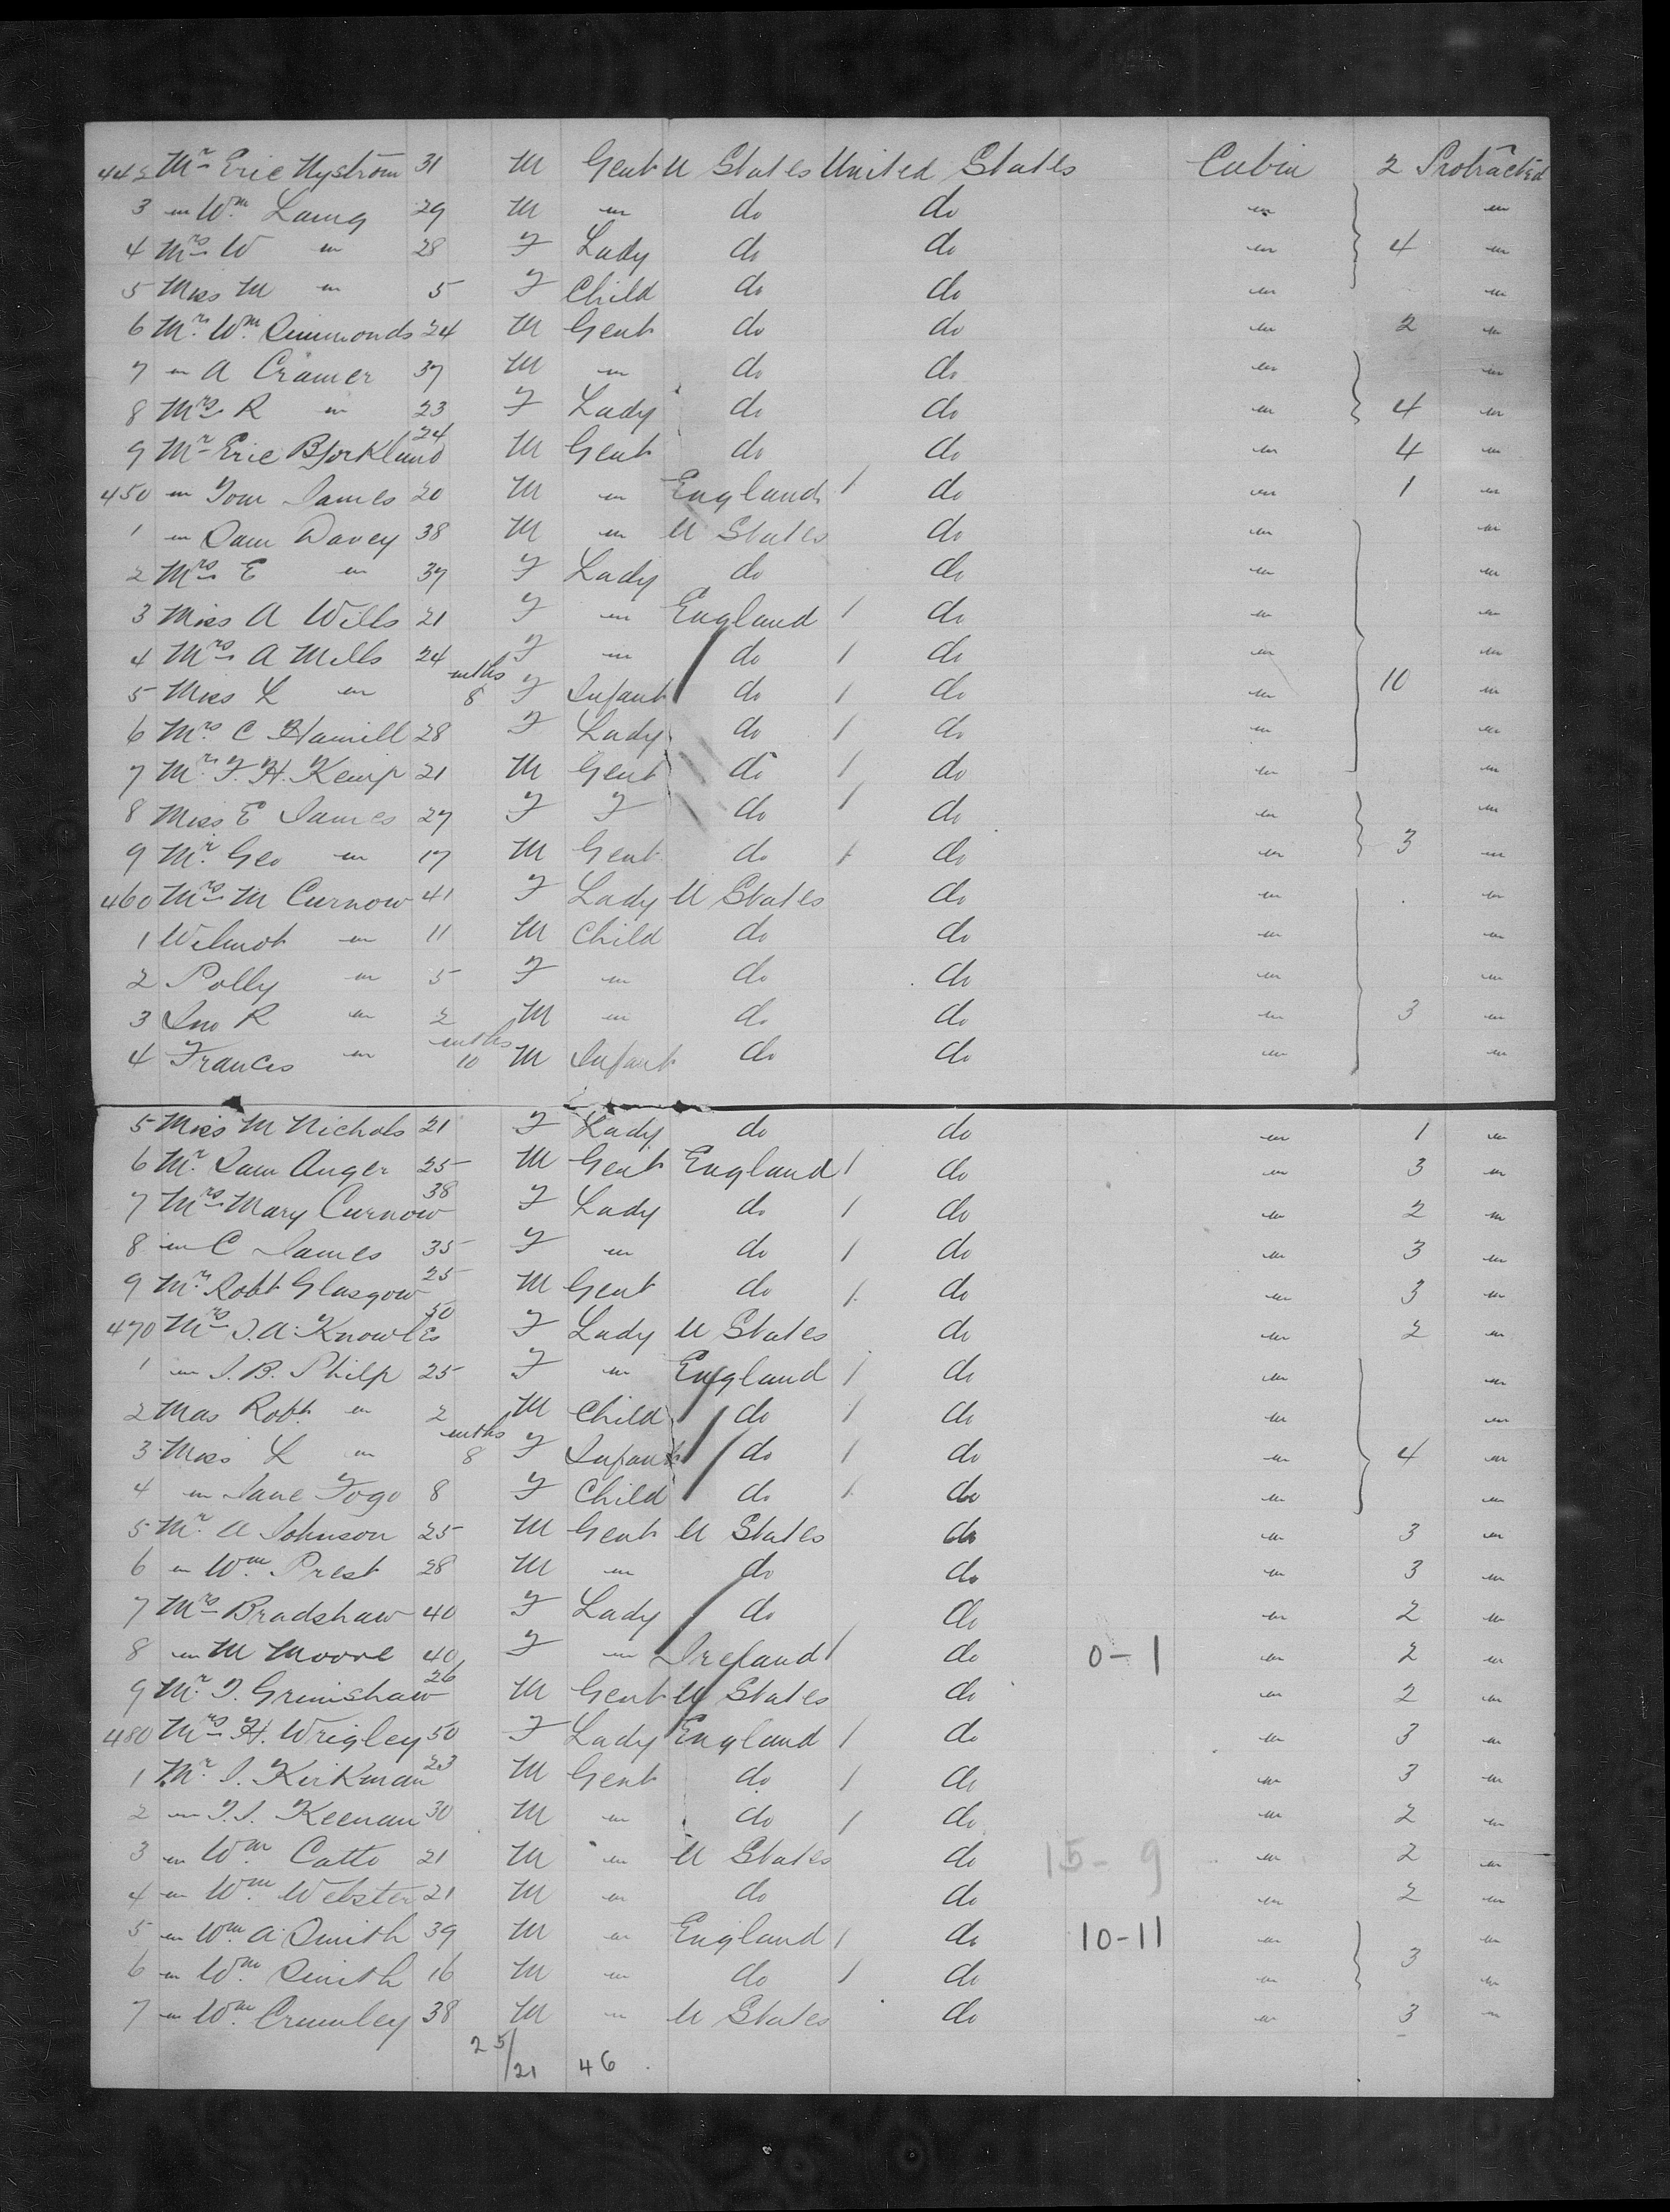 442 Mr Eric Nystrom 31 M Gent U States United States Cabin 2 Protracted
3 " Wm Laing 29 M " do do " "
4 Mrs W " 28 F Lady do do " 4 "
5 Miss M " 5 F Child do do " "
6 Mr. Wm. Simmonds 24 M Gent do do " 2 "
7 " A Cramer 37 M " do do " "
8 Mrs R " 23 F Lady do do " 4 "
9 Mr Eric Bjorklund 24 M Gent do do " 4 "
450 " Tom James 20 M " England 1 do " 1 "
1 " Sam Davey 38 M " U States do " "
2 Mrs E " 37 F Lady do do " "
3 Miss A Wills 21 F " England 1 do " "
4 Mrs A Mills 24 F " do 1 do " "
5 Miss L " mths 8 F Infant do 1 do " 10 "
6 Mrs C Hamill 28 F Lady do 1 do " "
7 Mr. F. H. Kemp 21 M Gent do 1 do " "
8 Miss E James 27 F F do 1 do " "
9 Mr. Geo " 17 M Gent do 1 do " 3 "
460 Mrs M Curnow 41 F Lady U States do " "
1 Wilmot " 11 M Child do do " "
2 Polly " 5 F " do do " "
3 Jno R " 2 M " do do " 3 "
4 Frances " mths 10 M Infant do do " "
5 Miss M Nichols 21 F Lady do do " 1 "
6 Mr. Sam Auger 25 M Gent England 1 do " 3 "
7 Mrs Mary Curnow 38 F Lady do 1 do " 2 "
8 " C James 35 F " do 1 do " 3 "
9 Mr. Robt Glasgow 25 M Gent do 1 do " 3 "
470 Mrs J. A. Knowles 50 F Lady U States do " 2 "
1 " J. B. Philp 25 F " England 1 do " "
2 Mas Robt. " 2 M Child do 1 do " "
3 Miss L " mths 8 F Infant do 1 do " 4 "
4 " Jane Fogo 8 F Child do 1 do " "
5 Mr. A Johnson 25 M Gent U States do " 3 "
6 " Wm. Prest 28 M " do do " 3 "
7 Mrs Bradshaw 40 F Lady do do " 2 "
8 " M Moore 40 F " Ireland 1 do 0-1 " 2 "
9 Mr. J. Grimshaw 26 M Gent U States do " 2 "
480 Mrs H. Wrigley 50 F Lady England 1 do " 3 "
1 Mr. J. Kirkman 23 M Gent do 1 do " 3 "
2 " T. J. Keenan 30 M " do 1 do " 2 "
3 " Wm. Catto 21 M " U States do 15-9 " 2 "
4 " Wm. Webster 21 M " do do " 2 "
5 " Wm. A. Smith 39 M " England 1 do 10-11 " "
6 " Wm. Smith 16 M " do 1 do " 3 "
7 " Wm. Crumley 38 M " U States do " 3 "
25/21 46